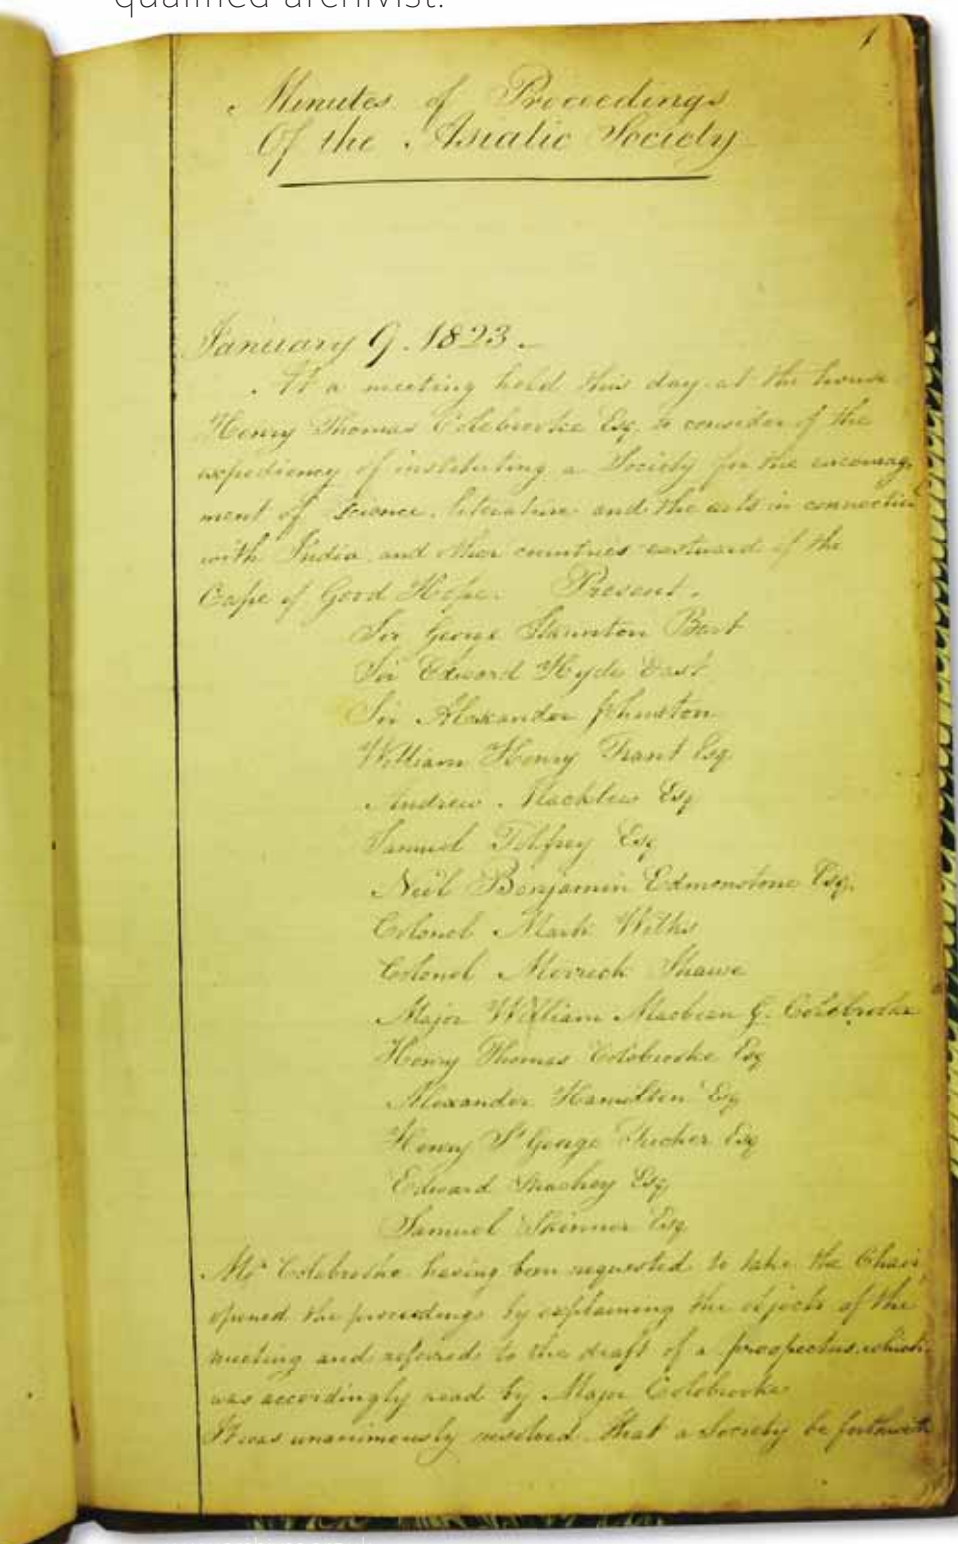 qualified archivist.
1
Minutes of Proceedings
Of the Asiatic Society
January 9. 1823.
At a meeting held this day at the house
Henry Thomas Colebrooke Esq. to consider of the
expediency of instituting a Society for the encourage
ment of science, literature and the arts in connection
with India and other countries eastward of the
Cape of Good Hope. Present.
Sir George Staunton Bart
Sir Edward Hyde East
Sir Alexander Johnston
William Henry Trant Esq.
Andrew Macklew Esq
Samuel Tolfrey Esq
Neil Benjamin Edmonstone Esq.
Colonel Mark Wilks
Colonel Merrick Shawe
Major William Macbean G. Colebrooke
Henry Thomas Colebrooke Esq
Alexander Hamilton Esq
Henry St George Tucker Esq
Edward Strachey Esq
Samuel Skinner Esq
Mr Colebrooke having been requested to take the Chair,
opened the proceedings by explaining the objects of the
meeting and referred to the draft of a prospectus which
was accordingly read by Major Colebrooke
It was unanimously resolved that a Society be forthwith